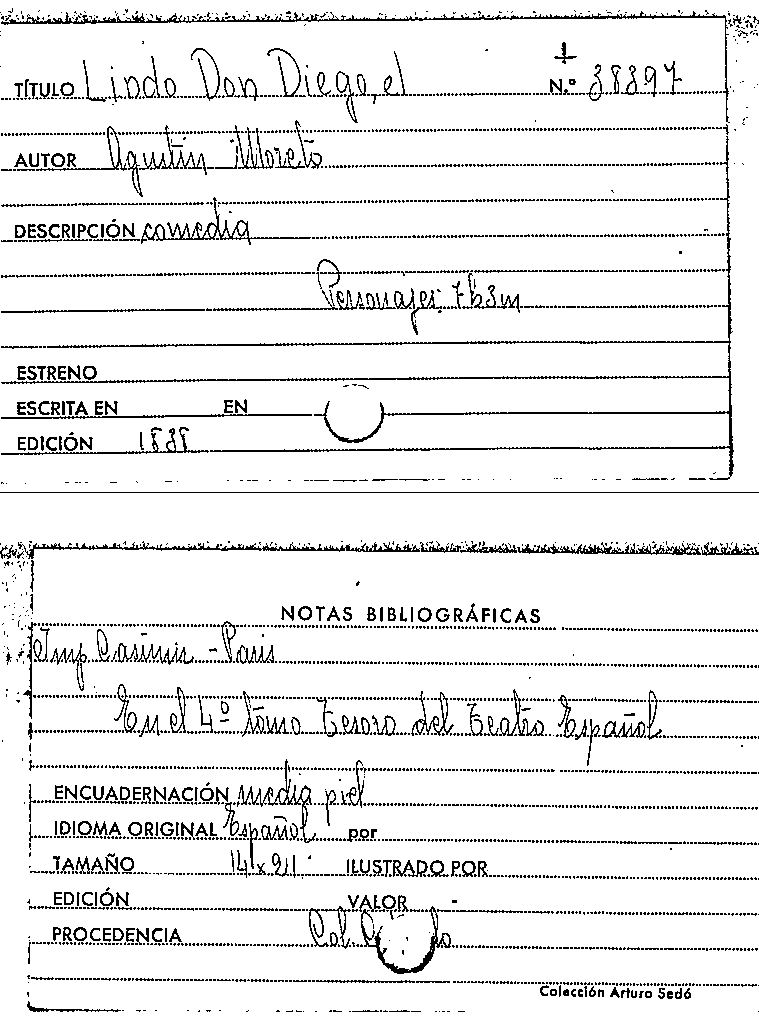 TÍTULO Lindo Don Diego, el N.º 38397
AUTOR Agustín Moreto
DESCRIPCIÓN comedia
Personajes: 7h3m
ESTRENO
ESCRITA EN EN
EDICIÓN 1838
NOTAS BIBLIOGRÁFICAS
Imp Casimir - Paris
En el 4º tomo Tesoro del Teatro Español
ENCUADERNACIÓN media piel
IDIOMA ORIGINAL Español por
TAMAÑO ILUSTRADO POR
EDICIÓN VALOR
PROCEDENCIA Col
Colección Arturo Sedó